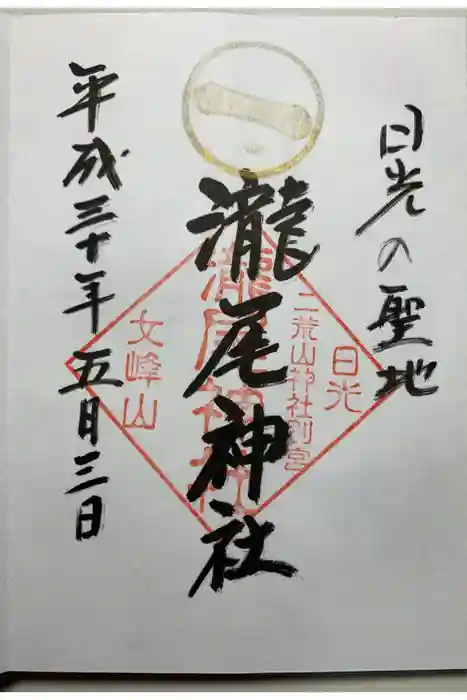 日光の聖地
瀧尾神社
平成三十年五月三日
日光
二荒山神社別宮
瀧尾神社
女峰山